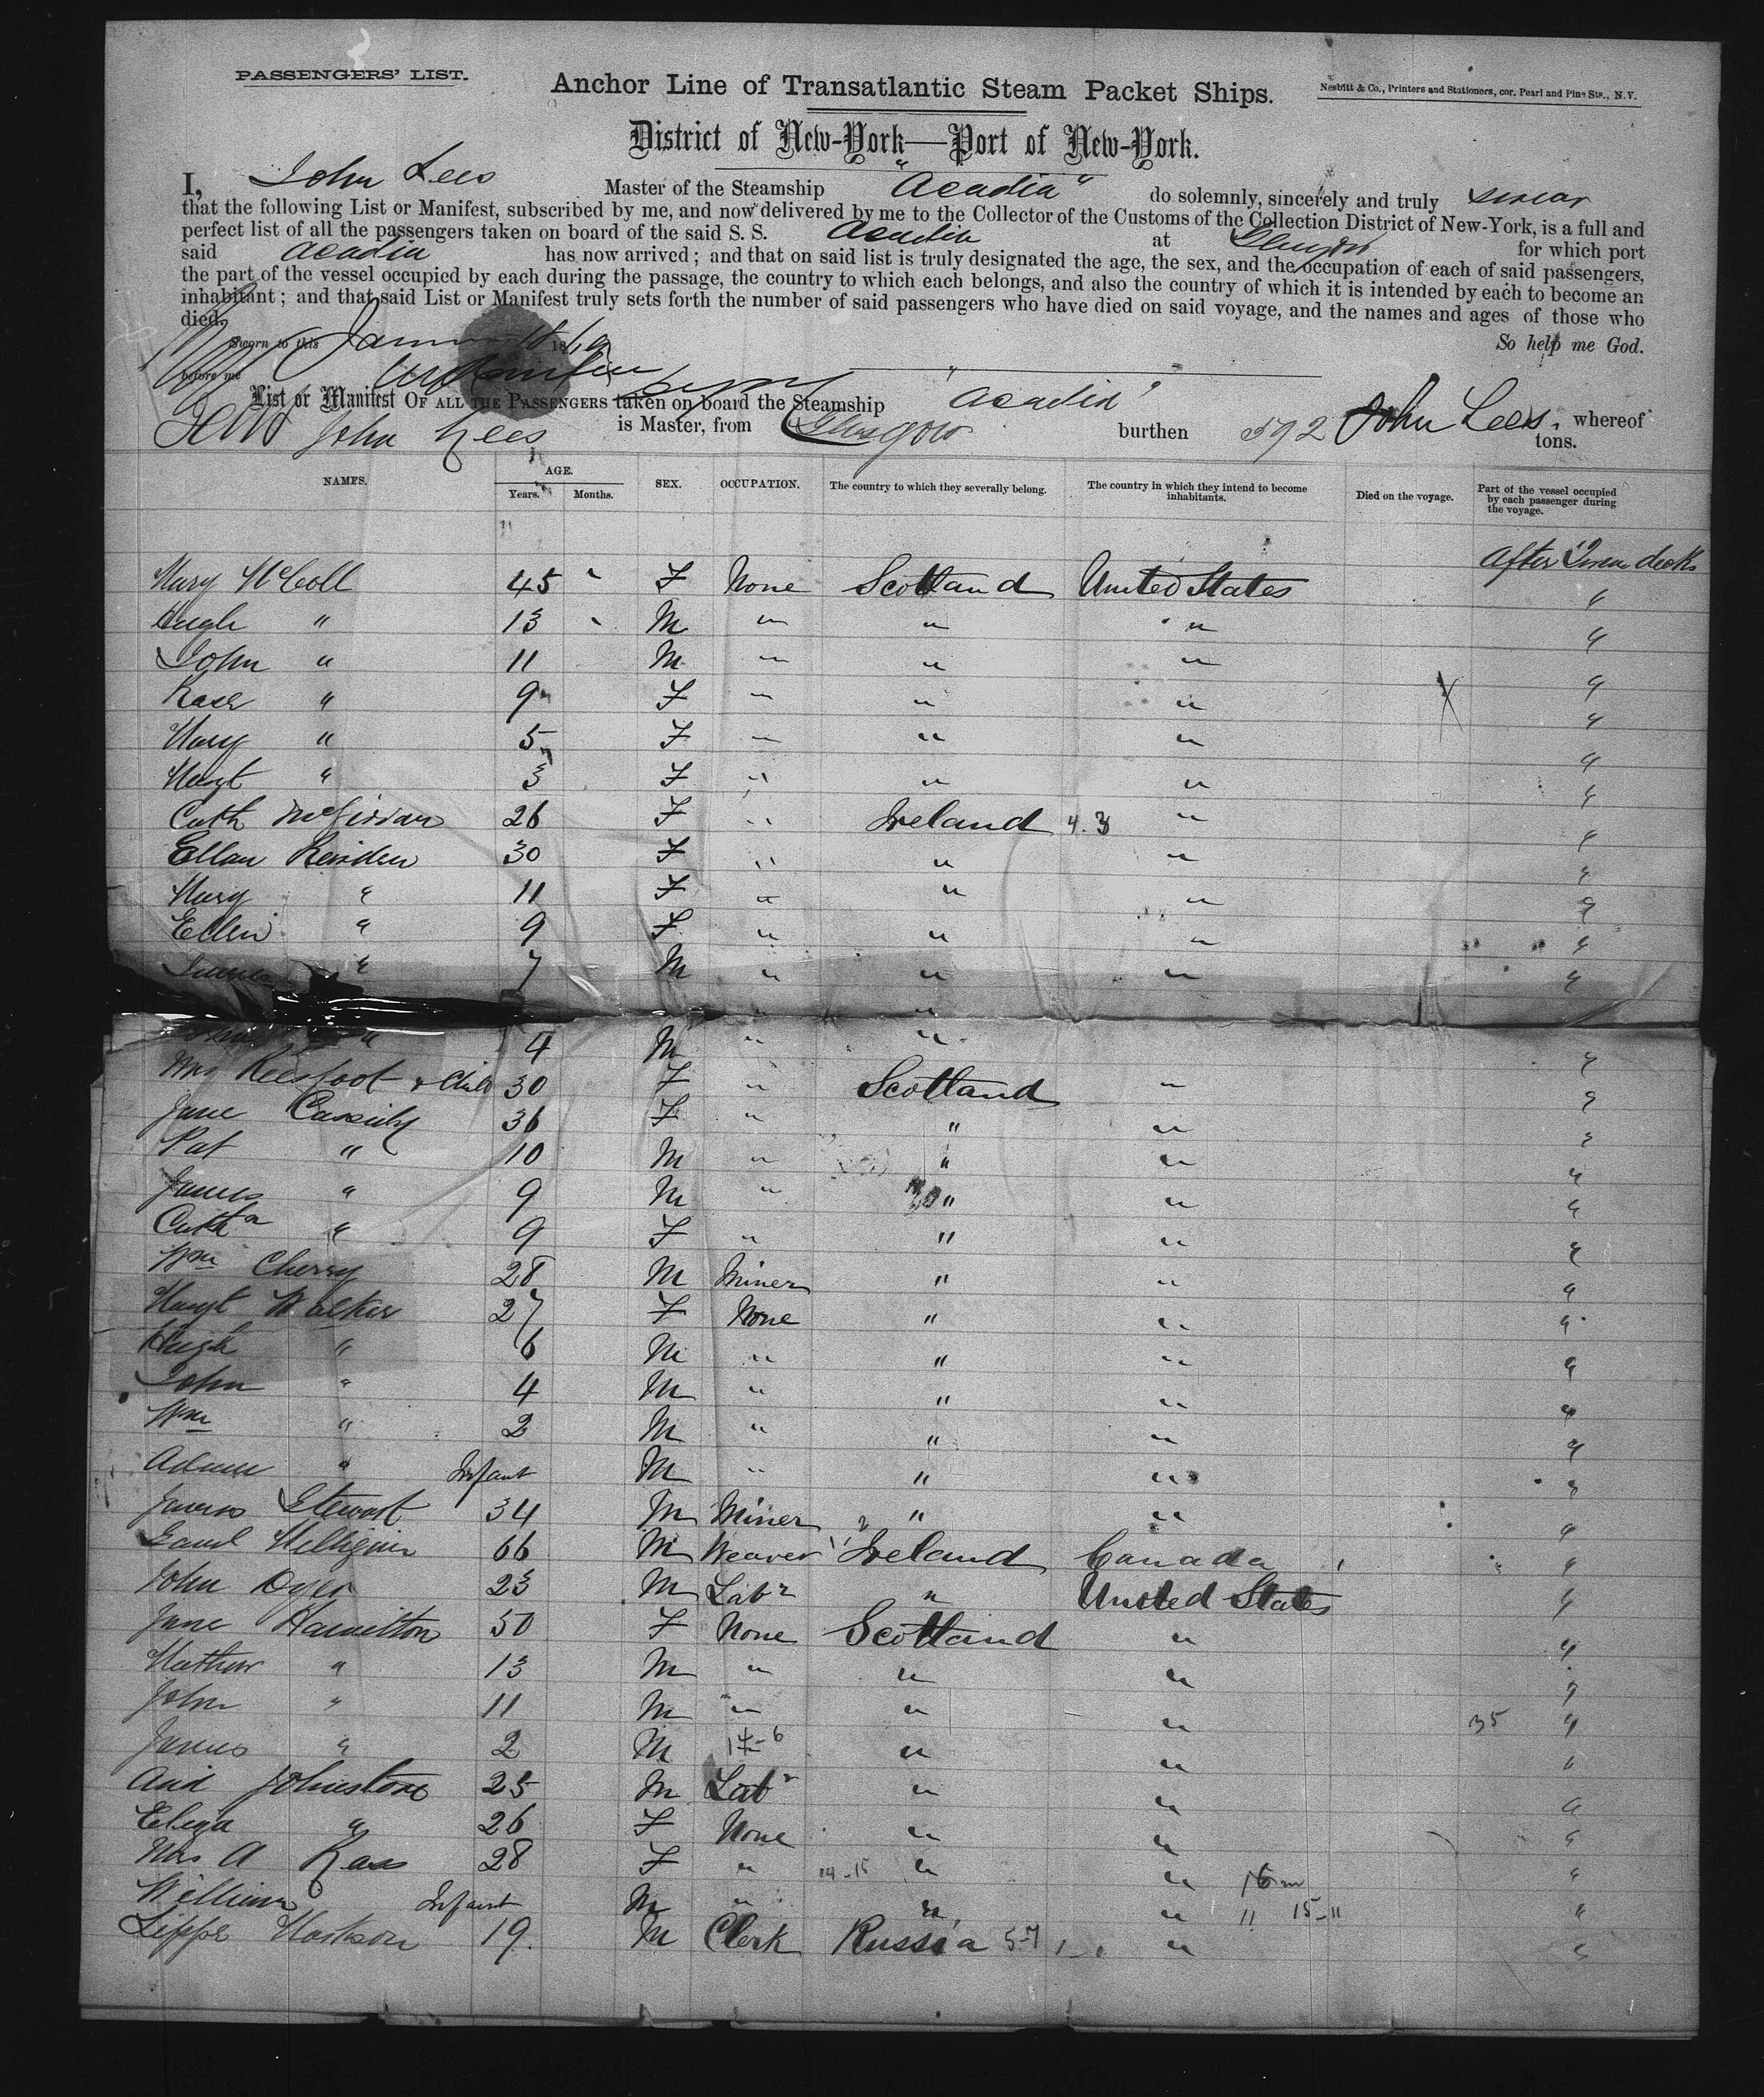 PASSENGERS' LIST.
Anchor Line of Transatlantic Steam Packet Ships.
Nesbitt & Co., Printers and Stationers, cor. Pearl and Pine Sts., N.Y.
District of New-York—Port of New-York.
I, John Lees Master of the Steamship "Acadia" do solemnly, sincerely and truly swear
that the following List or Manifest, subscribed by me, and now delivered by me to the Collector of the Customs of the Collection District of New-York, is a full and
perfect list of all the passengers taken on board of the said S. S. Acadia at Glasgow for which port
said Acadia has now arrived; and that on said list is truly designated the age, the sex, and the occupation of each of said passengers,
the part of the vessel occupied by each during the passage, the country to which each belongs, and also the country of which it is intended by each to become an
inhabitant; and that said List or Manifest truly sets forth the number of said passengers who have died on said voyage, and the names and ages of those who
died.
So help me God.
Sworn to this 18
before me
List or Manifest OF ALL THE PASSENGERS taken on board the Steamship Acadia whereof
John Lees is Master, from Glasgow burthen 592 John Lees. tons.
NAMES. AGE. Years. Months. SEX. OCCUPATION. The country to which they severally belong. The country in which they intend to become inhabitants. Died on the voyage. Part of the vessel occupied by each passenger during the voyage.
Mary McColl 45 F None Scotland United States After
Hugh " 13 M " " " "
John " 11 M " " " "
" 9 F " " " "
Mary " 5 F " " " "
Margt " 3 F " " " "
Cath 26 F " Ireland 4.3 " "
Ellan 30 F " " " "
Mary " 11 F " " " "
Ellen " 9 F " " " "
James " 7 M " " " "
" 4 M " " " "
Mrs & Child 30 F " Scotland " "
Jane Cassidy 36 F " " " "
Pat " 10 M " " " "
James " 9 M " " " "
Cath " 9 F " " " "
Wm Cherry 28 M Miner " " "
Margt Walker 27 F None " " "
Hugh " 6 M " " " "
John " 4 M " " " "
Wm " 2 M " " " "
Adam " Infant M " " " "
James Stewart 34 M Miner " " "
Saml 66 M Weaver Ireland Canada "
John Dyer 23 M Labr " United States "
Jane Hamilton 50 F None Scotland " "
Mathew " 13 M " " " "
John " 11 M " " " 35 "
James " 2 M " " "
Johnstone 25 M Labr " " "
Eliza " 26 F None " " "
Mrs A Ross 28 F " 14-15 " " "
William Infant M " " " " 15-11 "
19. M Clerk Russia " "